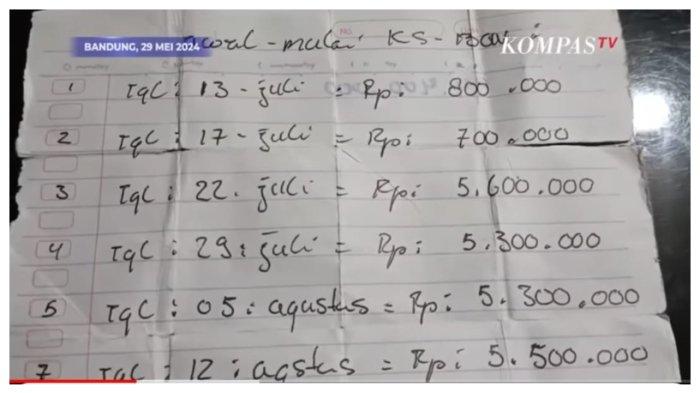 BANDUNG, 29 MEI 2024
KOMPASTV
awal - mulai KS -
1 TgL : 13 - juli = Rp: 800.000
2 TgL : 17 - juli = Rp: 700.000
3 TgL : 22. juli = Rp: 5.600.000
4 TgL : 29 : juli = Rp: 5.300.000
5 TgL : 05 : agustus = Rp: 5.300.000
7 TgL : 12 : agstus = Rp: 5.500.000